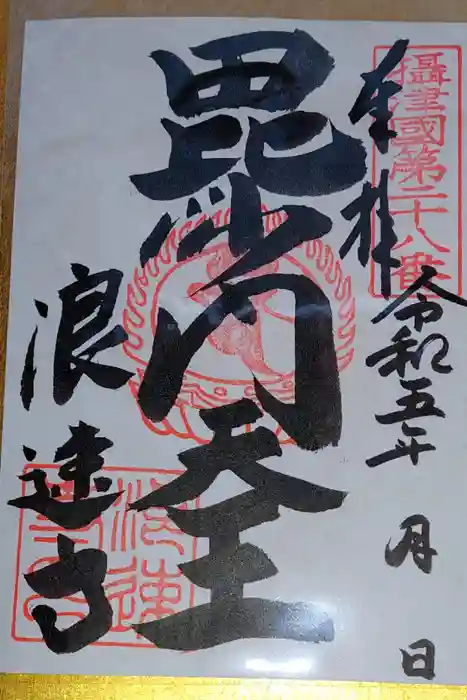 攝津國第二十八番
奉拝
令和五年 月 日
毘沙門天王
浪速寺
浪速寺